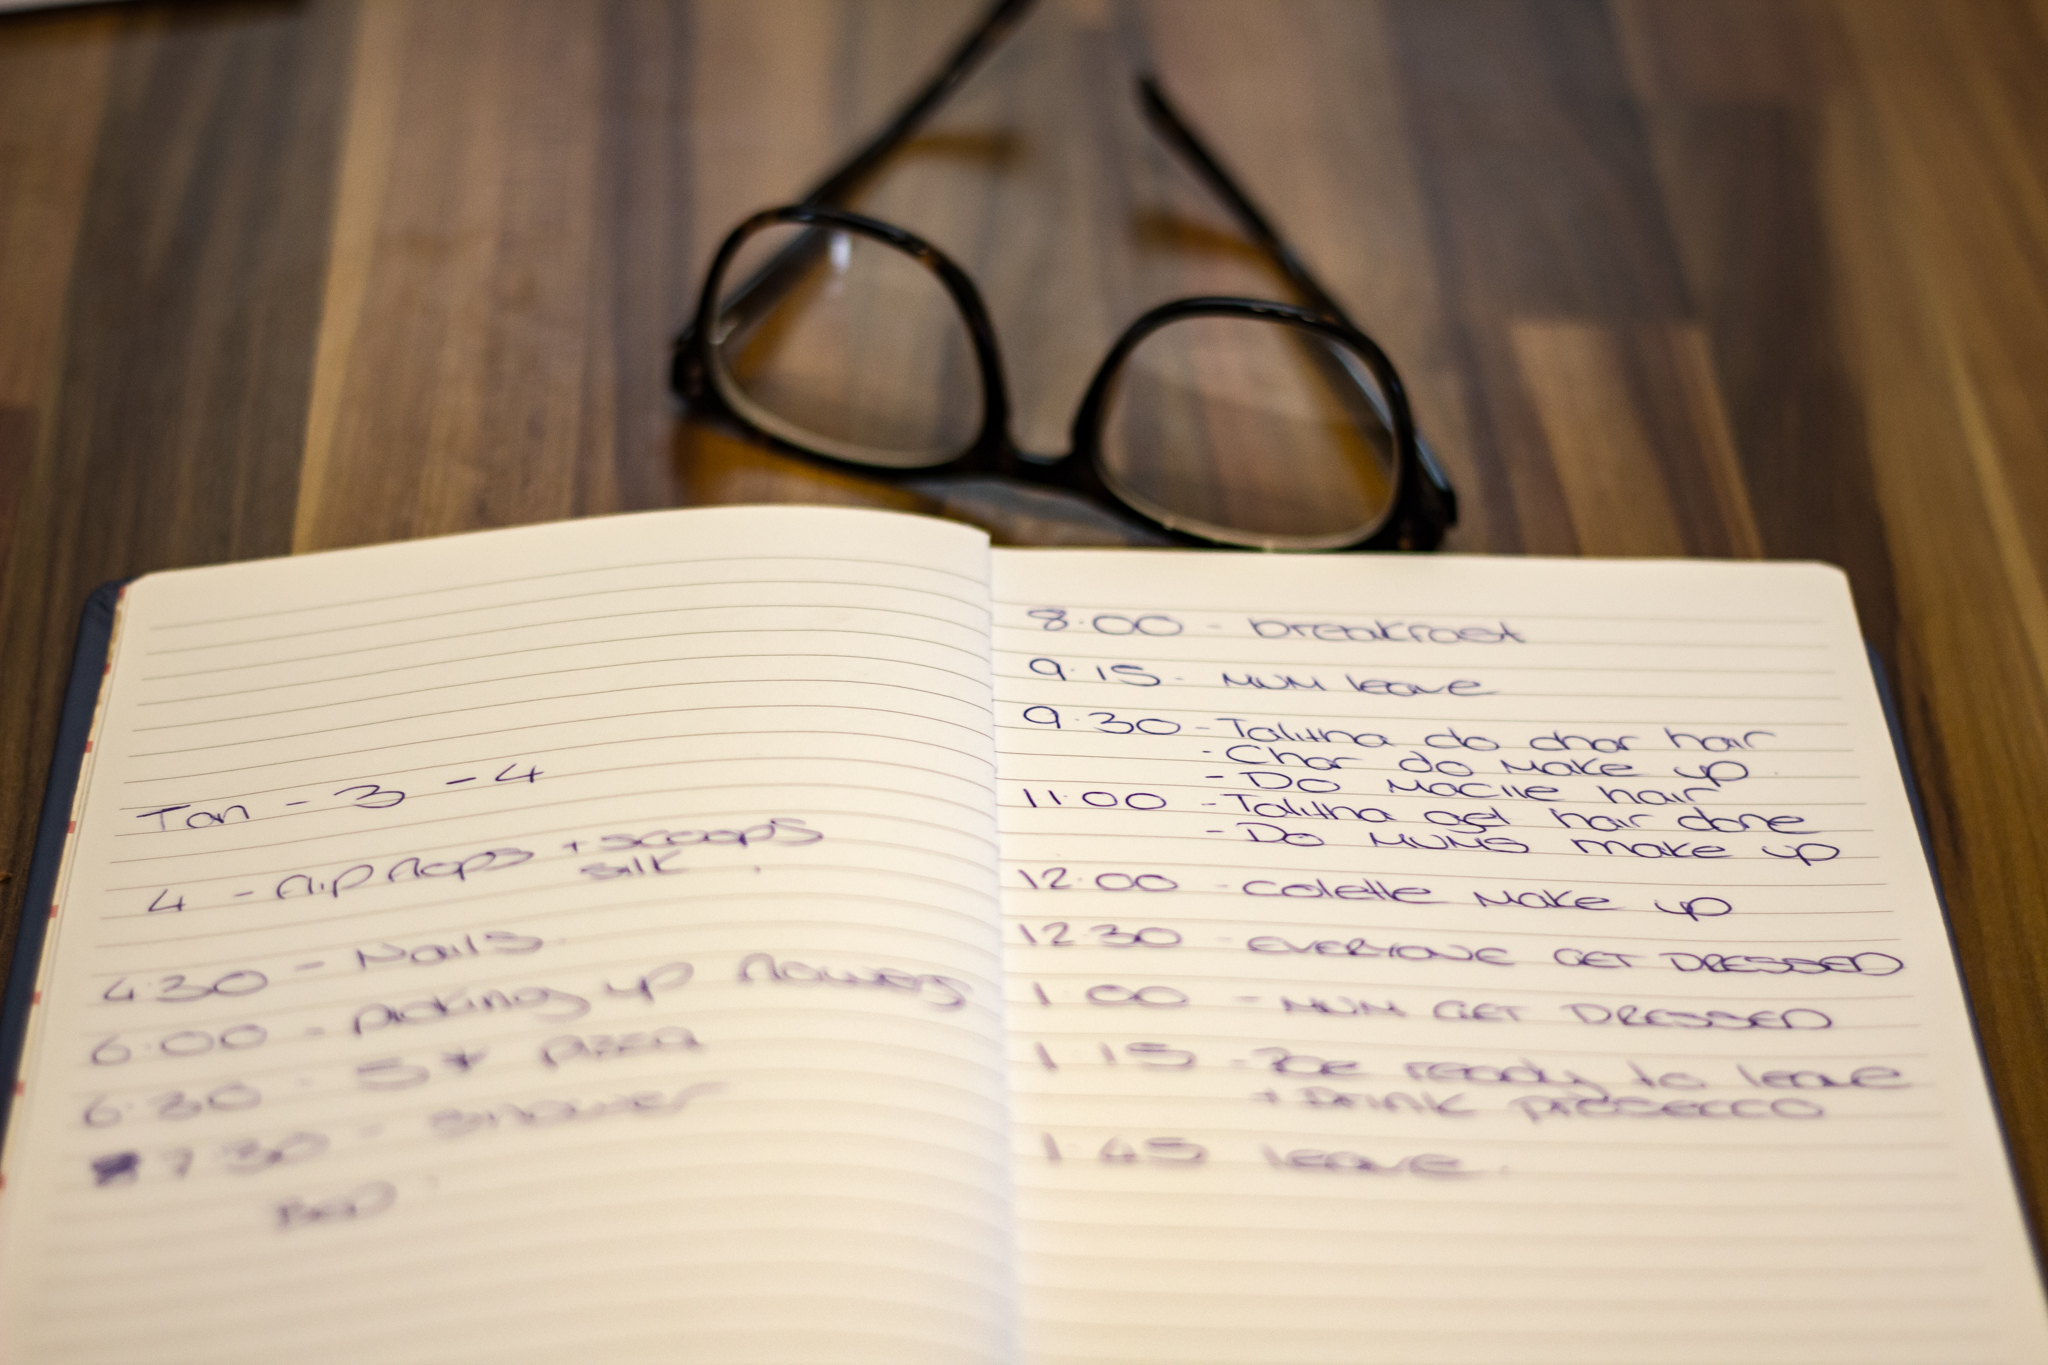 Tan - 3 - 4
4 - flip flops + scoops
silk
4:30 - Nails
6:00 - picking up flowers
6:30 - 5* pizza
7:30 - shower
BED
8:00 - breakfast
9:15 - MUM leave
9:30 - Talitha do char hair
- Char do make up
- Do Macile hair
11:00 - Talitha get hair done
- Do MUMS make up
12:00 - Colette make up
12:30 - EVERYONE GET DRESSED
1:00 - MUM GET DRESSED
1:15 - Be ready to leave
+ DRINK PROSECCO
1:45 leave.